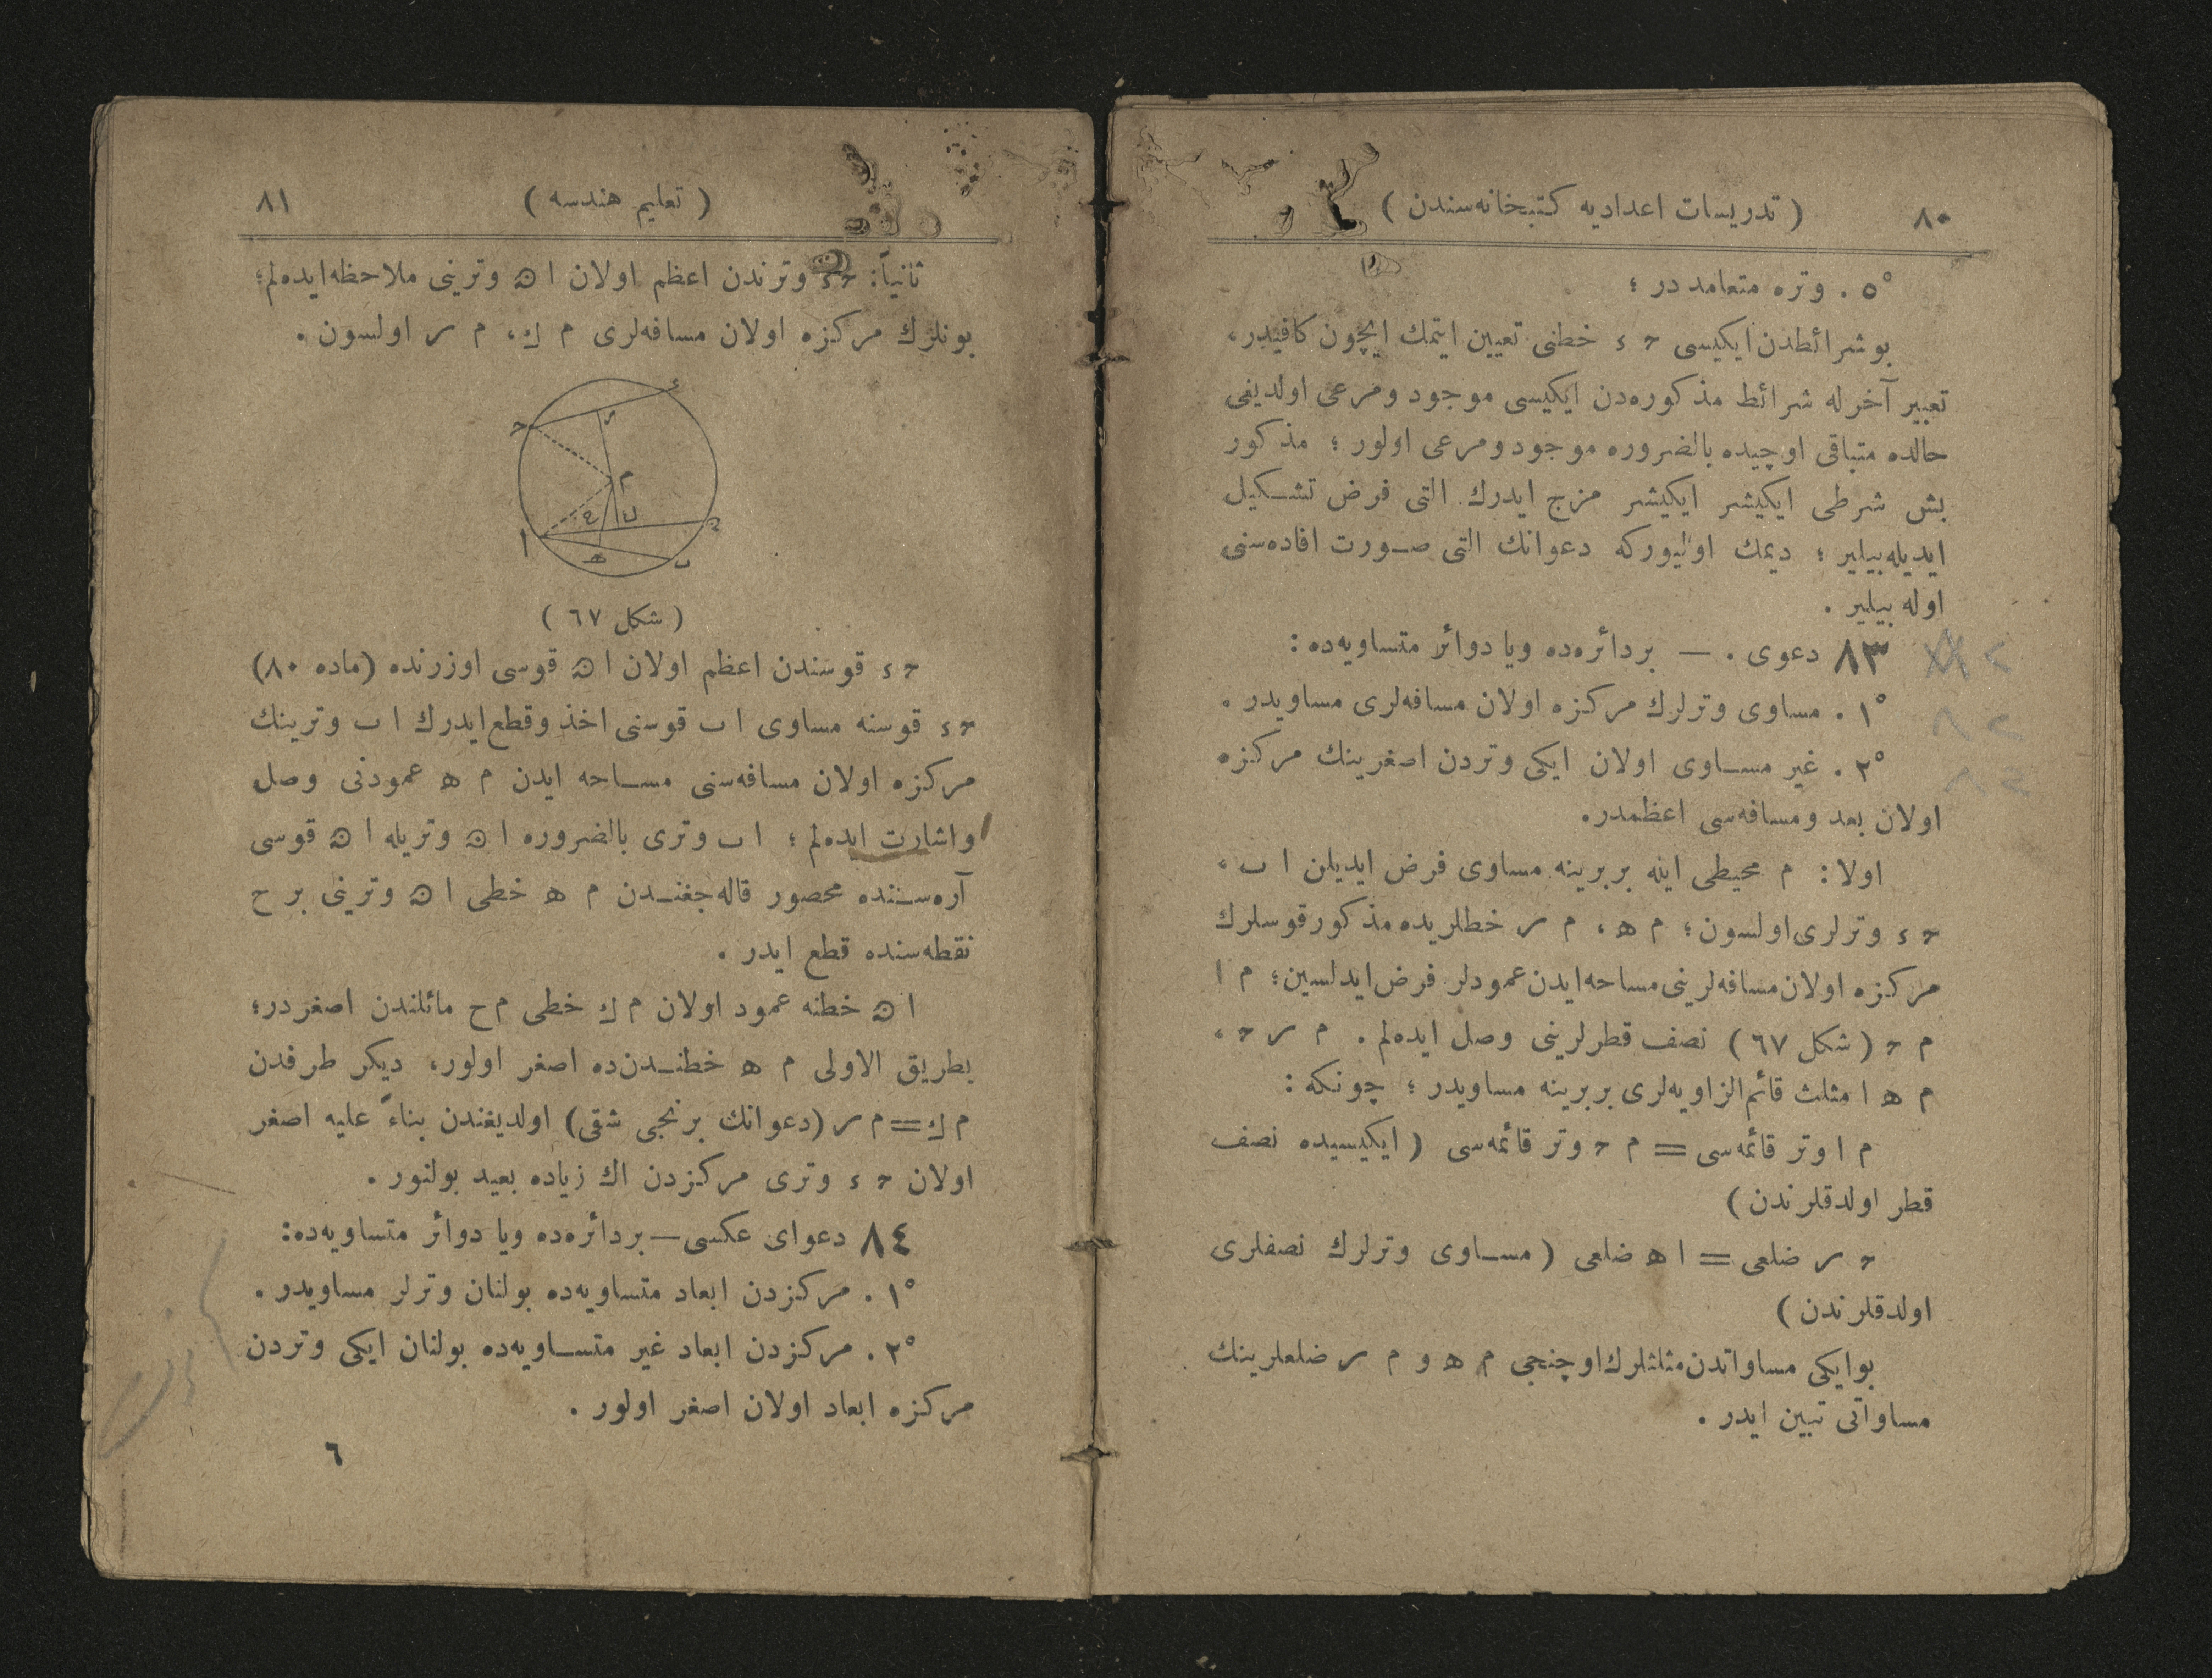 ٨٠
( تدریسات اعدادیه کتبخانه‌سندن )
٥° . وتره متعامد در ؛
بو شرائطدن ایکیسی ح د خطنی تعیین ایتمك ایچون کافیدر،
تعبیر آخرله شرائط مذکوره‌دن ایکیسی موجود و مرعی اولدیغی
حالده متباقی اوچیده بالضروره موجود و مرعی اولور ؛ مذکور
بش شرطی ایکیشر ایکیشر مزج ایدرك التی فرض تشکیل
ایدیله‌بیلیر ؛ دیمك اولیورکه دعوانك التی صورت افاده‌سنی
اوله بیلیر .
٨٣ دعوی . — بردائره‌ده ویا دوائر متساویه‌ده :
١° . مساوی وترلرك مرکزه اولان مسافه‌لری مساویدر .
٢° . غیر مساوی اولان ایکی وتردن اصغرینك مرکزه
اولان بعد و مسافه‌سی اعظمدر.
اولا : م محیطی اینه بربرینه مساوی فرض ایدیلن ا ب ،
ح د وترلری اولسون ؛ م ه ، م ر خطلریده مذکور قوسلرك
مرکزه اولان مسافه‌لرینی مساحه ایدن عمودلر فرض ایدلسین؛ م ا
م ح ( شکل ٦٧ ) نصف قطرلرینی وصل ایده‌لم . م ر ح ،
م ه ا مثلث قائم الزاویه‌لری بربرینه مساویدر ؛ چونکه :
م ا وتر قائمه‌سی = م ح وتر قائمه‌سی ( ایکیسیده نصف
قطر اولدقلرندن )
ح ر ضلعی = ا ه ضلعی ( مساوی وترلرك نصفلری
اولدقلرندن )
بو ایکی مساواتدن مثلثلرك اوچنجی م ه و م ر ضلعلرینك
مساواتی تبین ایدر .
( تعلیم هندسه )
٨١
ثانیاً : ح د وترندن اعظم اولان ا ﻥ وترینی ملاحظه ایده‌لم؛
بونلرك مرکزه اولان مسافه‌لری م ك ، م ر اولسون .
د
ح
ر
م
ع
ك
ﻥ
ا
ه
ب
( شکل ٦٧ )
ح د قوسندن اعظم اولان ا ﻥ قوسی اوزرنده (ماده ٨٠)
ح د قوسنه مساوی ا ب قوسنی اخذ و قطع ایدرك ا ب وترینك
مرکزه اولان مسافه‌سنی مساحه ایدن م ه عمودنی وصل
واشارت ایده‌لم ؛ ا ب وتری بالضروره ا ﻥ وتریله ا ﻥ قوسی
آره‌سنده محصور قاله‌جغندن م ه خطی ا ﻥ وترینی بر ح
نقطه‌سنده قطع ایدر .
ا ﻥ خطنه عمود اولان م ك خطی م ح مائلندن اصغردر؛
بطریق الاولی م ه خطندن‌ده اصغر اولور، دیکر طرفدن
م ك = م ر (دعوانك برنجی شقی) اولدیغندن بناءً علیه اصغر
اولان ح د وتری مرکزدن اك زیاده بعید بولنور .
٨٤ دعوای عکسی — بردائره‌ده ویا دوائر متساویه‌ده:
١° . مرکزدن ابعاد متساویه‌ده بولنان وترلر مساویدر .
٢° . مرکزدن ابعاد غیر متساویه‌ده بولنان ایکی وتردن
مرکزه ابعاد اولان اصغر اولور .
٦